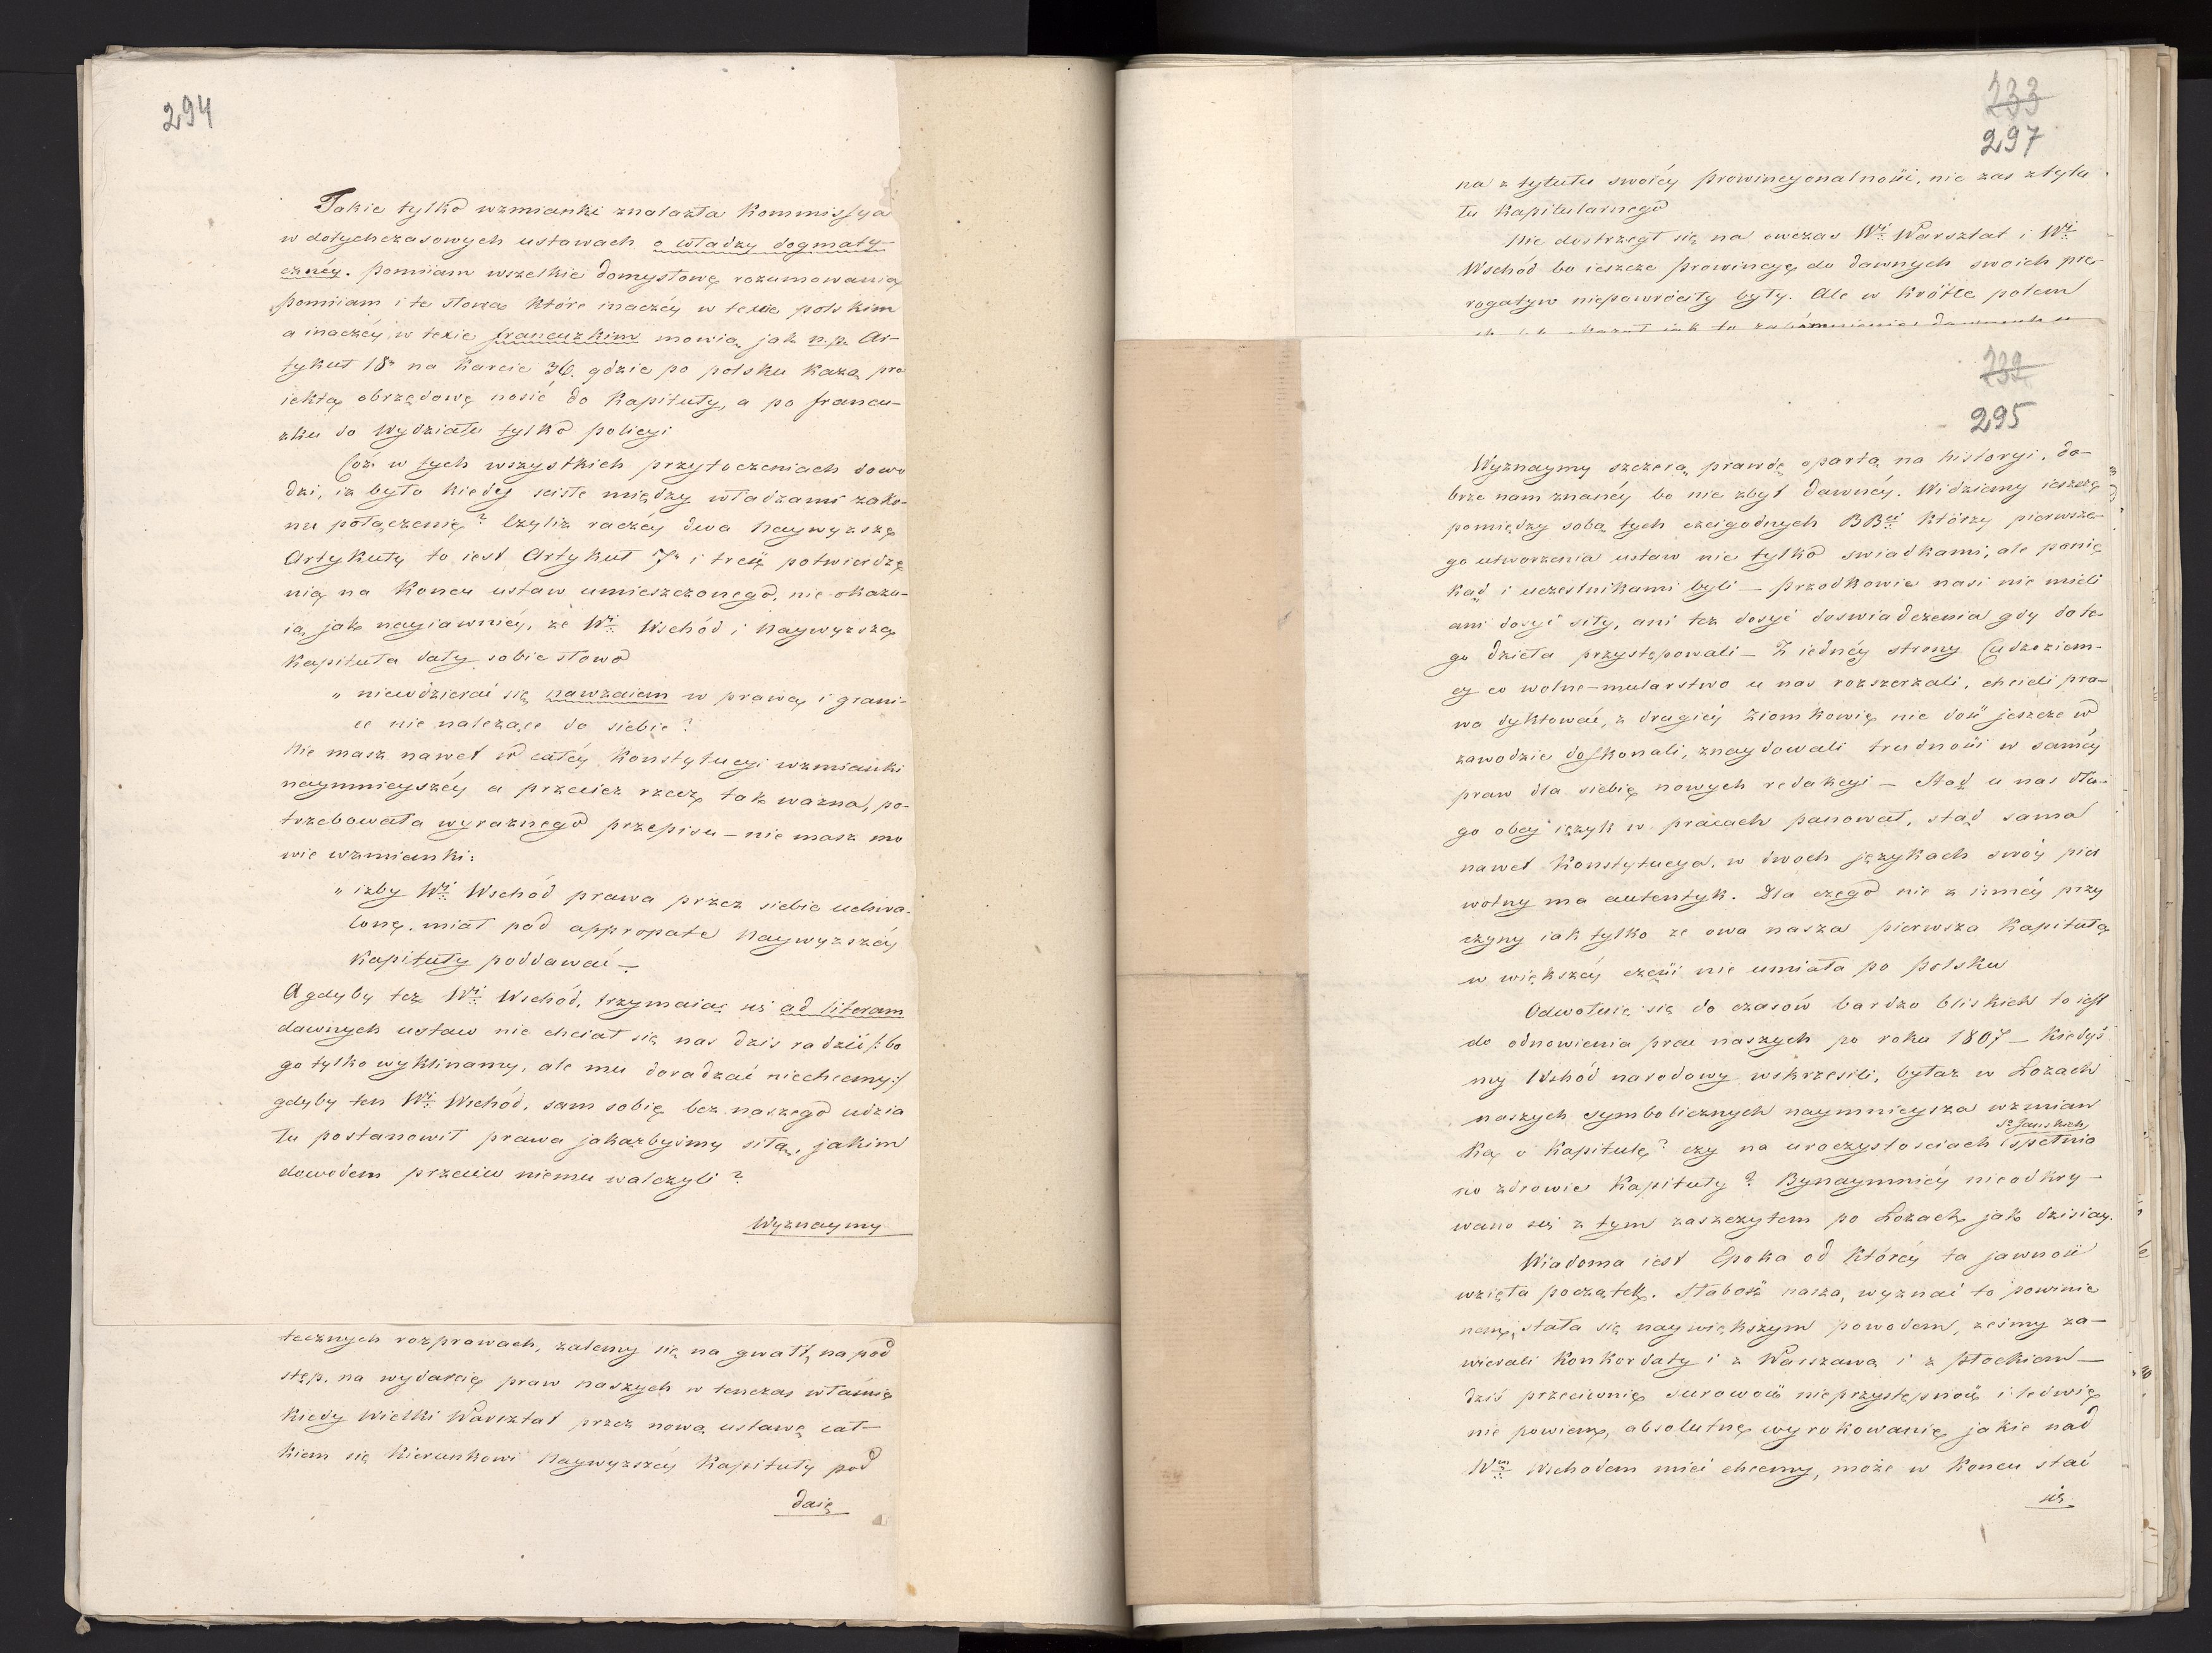 294
Takie tylko wzmianki znalazła Kommissya
w dotychczasowych ustawach o władzy dogmaty-
cznéy. pomiiam wszelkie domysłowe rozumowania
pomiiam i te słowa które inaczéy w texcie polskim
a inaczéy w texie francuzkim mowią, jak n.p. Ar-
tykuł 18. na karcie 36. gdzie po polsku każą pro
iekta obrzędowe nosić do Kapituły, a po francu-
zku do Wydziału tylko policyi
Coż w tych wszystkich przytoczeniach dowo
dzi, iż było kiedy scisłe między władzami zako-
nu połączenie? Czyliż raczéy dwa Naywyższe
Artykuły to iest Artykuł 7. i treść potwierdze
nia na końcu ustaw umieszczonego, nie okazu-
ią jak nayiawniéy, że W. Wschód i Naywyższa
Kapituła dały sobie słowo
" niewdzierać się nawzaiem w prawa i grani-
ce nie należące do siebie?
Nie masz nawet w całéy Konstytucyi wzmianki
naymnieyszéy a przecież rzecz tak ważna, po-
trzebowała wyraźnego przepisu – nie masz mo
wie wzmianki:
" iżby W. Wschód prawa przez siebie uchwa-
lone, miał pod appropatę Naywyższéy
Kapituły poddawać –
A gdyby też W. Wschód, trzymaiąc się ad literam
dawnych ustaw nie chciał się nas dziś radzić /: bo
go tylko wyklinamy, ale mu doradzać niechcemy :/
gdyby ten W. Wschód, sam sobie bez naszego udzia
łu postanowił prawa jakążbyśmy siłą, jakim
dowodem przeciw niemu walczyli?
Wyznaymy
tecznych rozprawach, żalemy się na gwałt, na pod
stęp, na wydarcie praw naszych w tenczas właśnie
kiedy Wielki Warsztat przez nową ustawę cał-
kiem się kierunkowi Naywyższéy Kapituły pod
daie
233
297
na z tytułu swoiéy prowincyonalności, nie zaś z tytu
łu Kapitularnego
Nie dostrzegł się na owczas W. Warsztat i W.
Wschód bo ieszcze prowincye do dawnych swoich pre-
rogatyw niepowróciły były. Ale w krótce potem
232
295
Wyznaymy szczerą prawdę opartą na historyi, do-
brze nam znanéy bo nie zbyt dawnéy. Widziemy ieszcze
pomiędzy sobą tych czcigodnych BB. którzy pierwsze-
go utworzenia ustaw nie tylko swiadkami, ale ponie
kąd i uczestnikami byli – przodkowie nasi nie mieli
ani dosyć siły, ani też dosyć doswiadczenia gdy do te-
go dzieła przystępowali – Z iednéy strony Cudzoziem-
cy co wolne-mularstwo u nas rozszerzali, chcieli pra-
wa dyktować, z drugiéy Ziomkowie nie dość jeszcze w
zawodzie doskonali, znaydowali trudności w saméy
praw dla siebie nowych redakcyi – Stąd u nas dłu-
go obcy ięzyk w pracach panował, stąd sama
nawet Konstytucya, w dwoch językach swóy pier
wotny ma autentyk. Dla czego nie z innéy przy
czyny iak tylko że owa nasza pierwsza Kapituła
w większéy części nie umiała po polsku
Odwołuię się do czasów bardzo bliskich to iest
do odnowienia prac naszych po roku 1807 – Kiedyś
my Wschód narodowy wskrzesili, byłaż w Lożach
naszych symbolicznych naymnieysza wzmian
ka o Kapitule? czy na uroczystościach S. Jańskich spełnio
no zdrowie Kapituły? Bynaymniéy nieodkry-
wano się z tym zaszczytem po Lożach jak dzisiay.
Wiadoma iest Epoka od któréy ta jawność
wzięła początek. Słabość nasza, wyznać to powinie
nem, stała się naywiększym powodem, żeśmy za-
wierali Konkordaty i z Warszawą i z płockiem –
dziś przeciwnie surowość nieprzystępność i ledwie
nie powiem, absolutne wyrokowanie jakie nad
W. Wschodem mieć chcemy, może w końcu stać
się